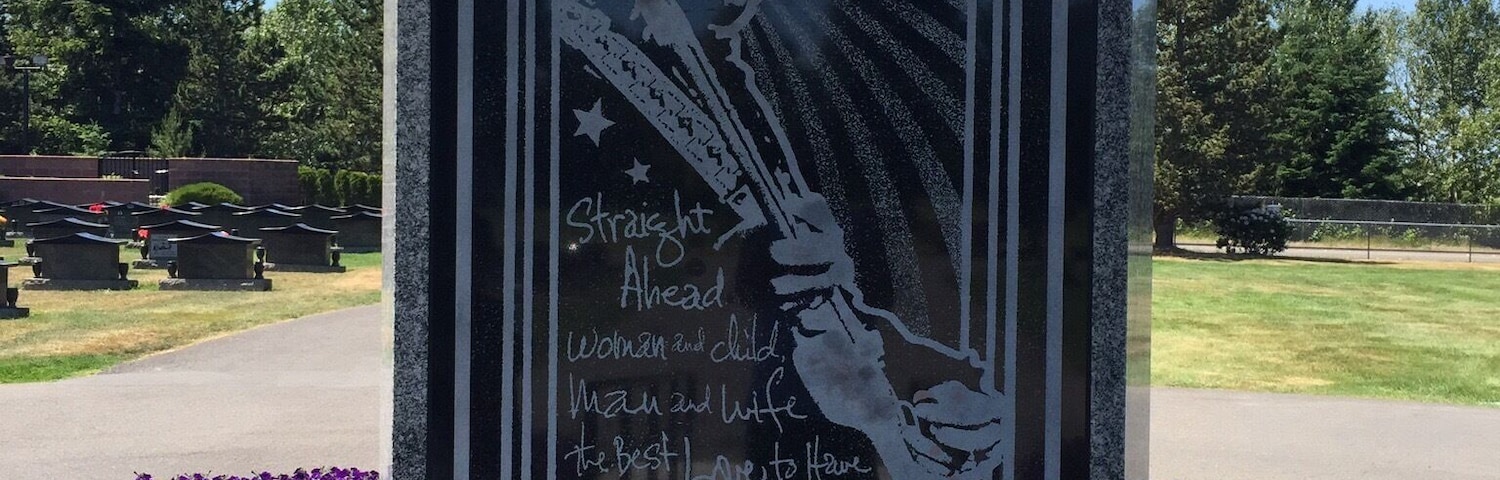 Straight
Ahead
Woman and child,
Man and Wife
the Best Love to Have